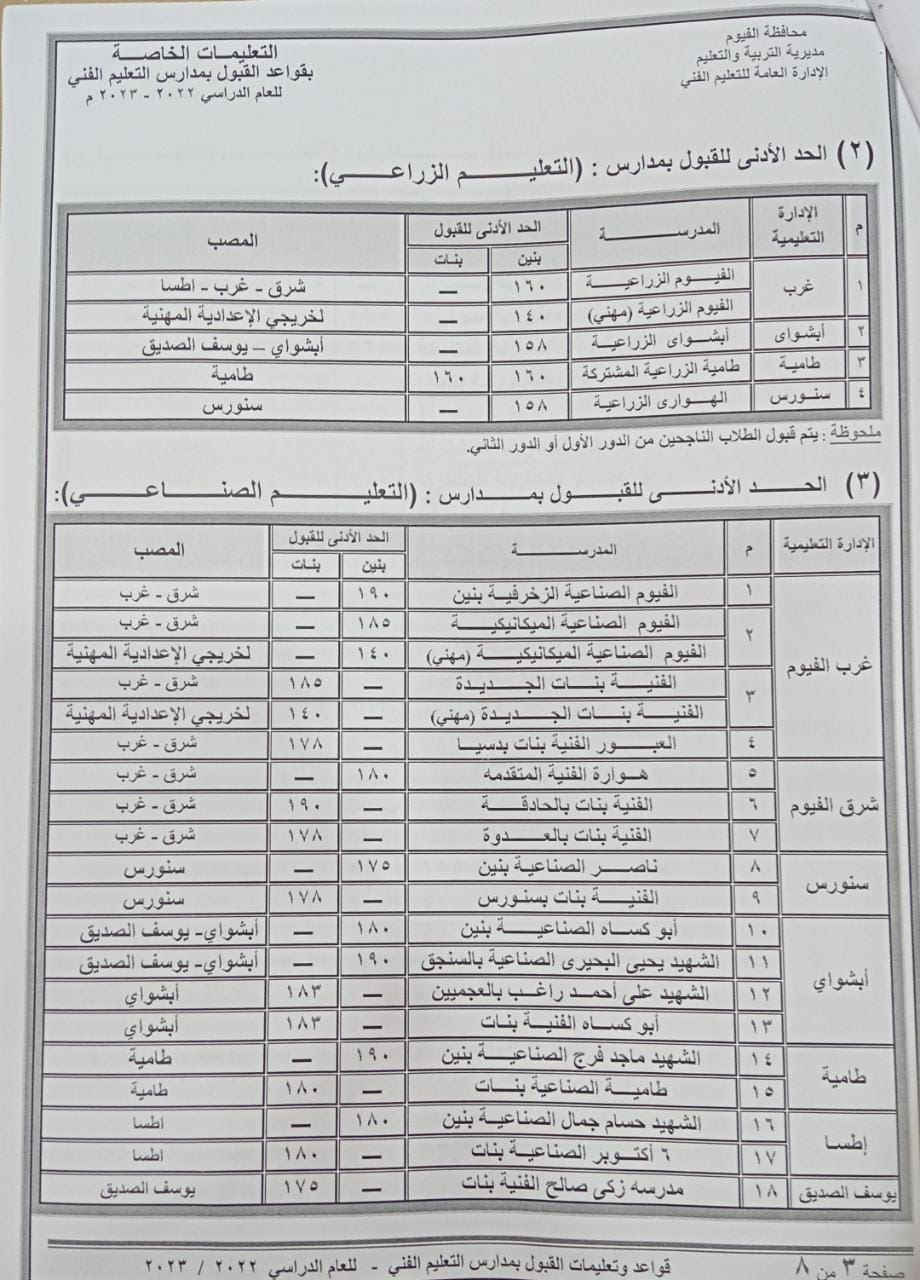 محافظة الفيوم
مديرية التربية والتعليم
الإدارة العامة للتعليم الفني
التعليمات الخاصة
بقواعد القبول بمدارس التعليم الفني
للعام الدراسي ٢٠٢٢ - ٢٠٢٣ م
(٢) الحد الأدنى للقبول بمدارس : (التعليم الزراعي):
م | الإدارة التعليمية | المدرسة | الحد الأدنى للقبول | المصب
بنين | بنات
١ | غرب | الفيوم الزراعية | ١٦٠ | — | شرق - غرب - اطسا
الفيوم الزراعية (مهني) | ١٤٠ | — | لخريجي الإعدادية المهنية
٢ | أبشواى | أبشواى الزراعية | ١٥٨ | — | أبشواي – يوسف الصديق
٣ | طامية | طامية الزراعية المشتركة | ١٦٠ | ١٦٠ | طامية
٤ | سنورس | الهوارى الزراعية | ١٥٨ | — | سنورس
ملحوظة : يتم قبول الطلاب الناجحين من الدور الأول أو الدور الثاني.
(٣) الحد الأدنى للقبول بمدارس : (التعليم الصناعي):
الإدارة التعليمية | م | المدرسة | الحد الأدنى للقبول | المصب
بنين | بنات
غرب الفيوم | ١ | الفيوم الصناعية الزخرفية بنين | ١٩٠ | — | شرق - غرب
٢ | الفيوم الصناعية الميكانيكية | ١٨٥ | — | شرق - غرب
الفيوم الصناعية الميكانيكية (مهني) | ١٤٠ | — | لخريجي الإعدادية المهنية
٣ | الفنية بنات الجديدة | — | ١٨٥ | شرق - غرب
الفنية بنات الجديدة (مهني) | — | ١٤٠ | لخريجي الإعدادية المهنية
٤ | العبور الفنية بنات بدسيا | — | ١٧٨ | شرق - غرب
شرق الفيوم | ٥ | هوارة الفنية المتقدمه | ١٨٠ | — | شرق - غرب
٦ | الفنية بنات بالحادقة | — | ١٩٠ | شرق - غرب
٧ | الفنية بنات بالعدوة | — | ١٧٨ | شرق - غرب
سنورس | ٨ | ناصر الصناعية بنين | ١٧٥ | — | سنورس
٩ | الفنية بنات بسنورس | — | ١٧٨ | سنورس
أبشواي | ١٠ | أبو كساه الصناعية بنين | ١٨٠ | — | أبشواي- يوسف الصديق
١١ | الشهيد يحيى البحيرى الصناعية بالسنجق | ١٩٠ | — | أبشواي- يوسف الصديق
١٢ | الشهيد على أحمد راغب بالعجميين | — | ١٨٣ | أبشواي
١٣ | أبو كساه الفنية بنات | — | ١٨٣ | أبشواي
طامية | ١٤ | الشهيد ماجد فرج الصناعية بنين | ١٩٠ | — | طامية
١٥ | طامية الصناعية بنات | — | ١٨٠ | طامية
إطسا | ١٦ | الشهيد حسام جمال الصناعية بنين | ١٨٠ | — | اطسا
١٧ | ٦ أكتوبر الصناعية بنات | — | ١٨٠ | اطسا
يوسف الصديق | ١٨ | مدرسه زكى صالح الفنية بنات | — | ١٧٥ | يوسف الصديق
صفحة ٣ من ٨
قواعد وتعليمات القبول بمدارس التعليم الفني - للعام الدراسي ٢٠٢٢ / ٢٠٢٣